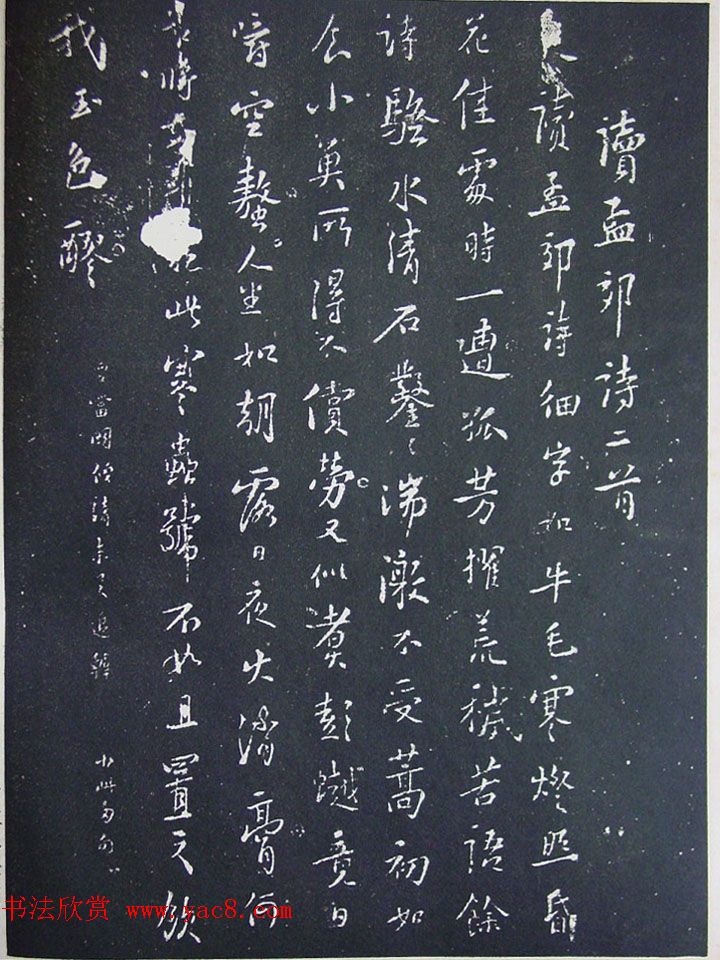 讀孟郊詩二首
讀孟郊詩細字如牛毛寒燈照昏
花佳處時一遭孤芳擢荒穢苦語餘
詩騷水清石鑿〻湍激不受蒿初如
食小魚所得不償勞又似煮彭竟日
空螯人生如朝露日夜火消膏何
將此寒蟲號不如且置之飲
我玉色醪
书法欣赏 www.yac8.com